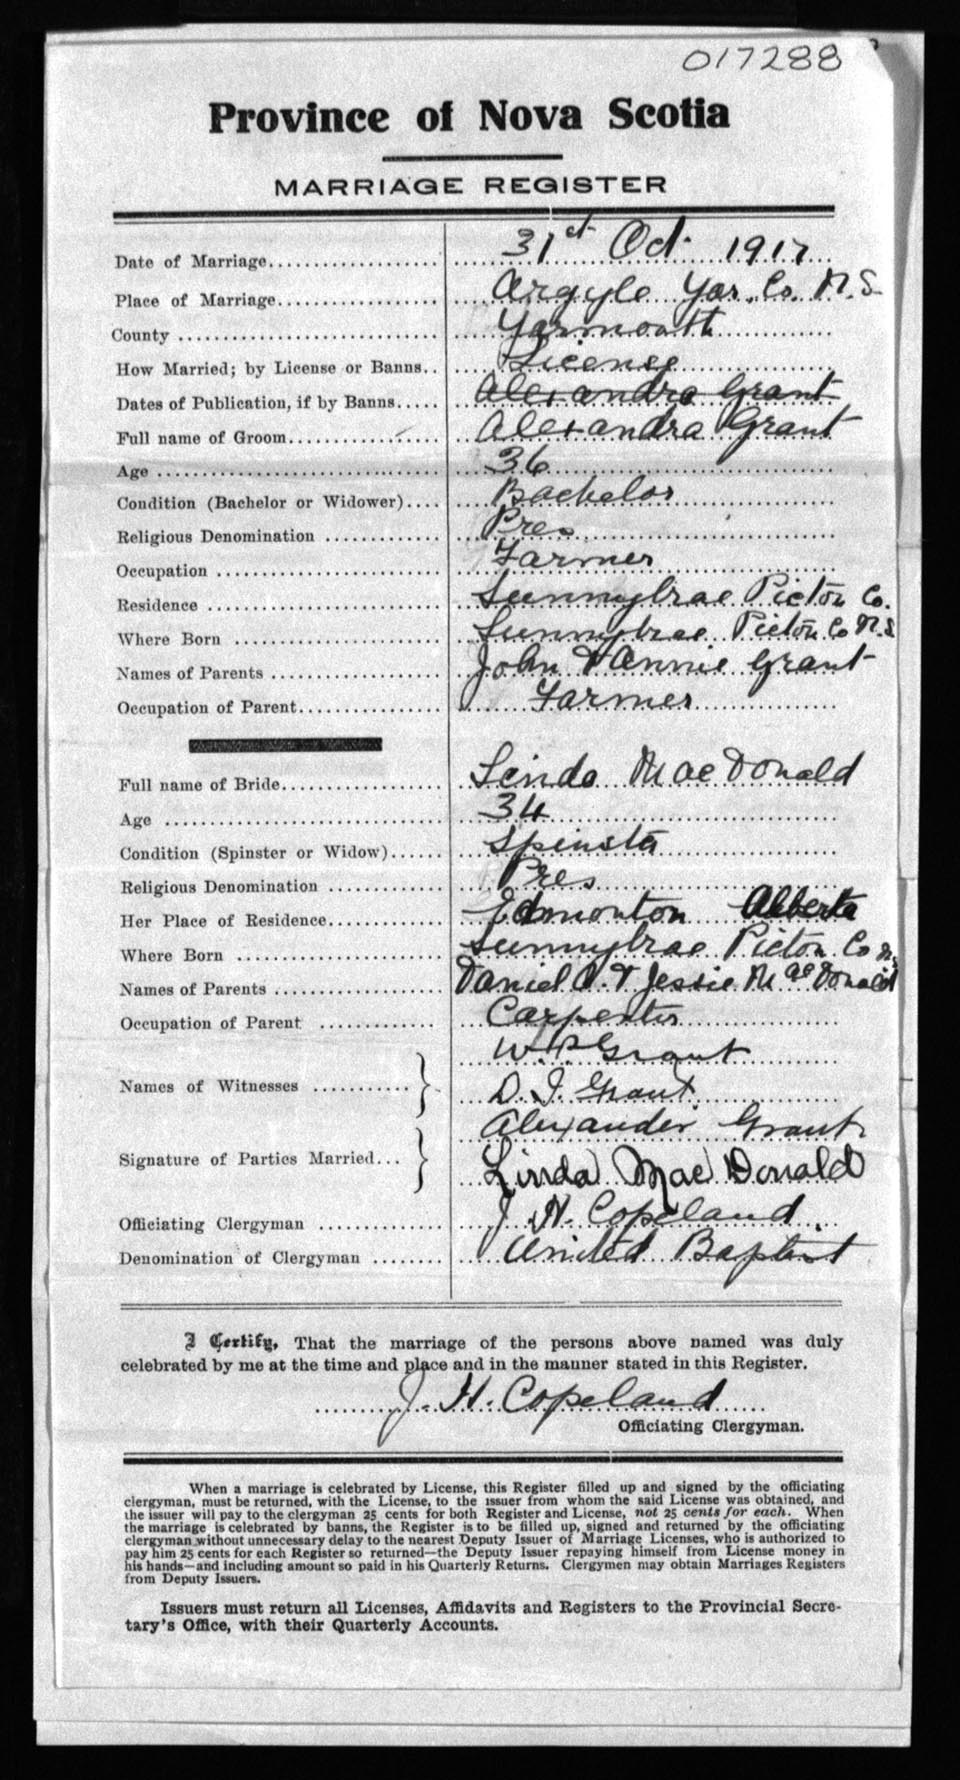 017288
Province of Nova Scotia
MARRIAGE REGISTER
Date of Marriage 31st Oct. 1917
Place of Marriage Argyle Yar. Co. N.S.
County Yarmouth
How Married; by License or Banns.. License
Dates of Publication, if by Banns..... Alexandra Grant
Full name of Groom Alexandra Grant
Age 36
Condition (Bachelor or Widower).... Bachelor
Religious Denomination Pres
Occupation Farmer
Residence Sunnybrae Pictou Co.
Where Born Sunnybrae Pictou Co N.S
Names of Parents John & Annie Grant
Occupation of Parent Farmer
Full name of Bride Linda MacDonald
Age 34
Condition (Spinster or Widow)...... Spinster
Religious Denomination Pres
Her Place of Residence Edmonton Alberta
Where Born Sunnybrae Pictou Co N.
Names of Parents Daniel A. & Jessie MacDonald
Occupation of Parent Carpenter
W.P. Grant
Names of Witnesses D. I. Grant
Alexander Grant
Signature of Parties Married... Linda MacDonald
Officiating Clergyman J. H. Copeland
Denomination of Clergyman United Baptist
I Certify, That the marriage of the persons above named was duly
celebrated by me at the time and place and in the manner stated in this Register.
J. H. Copeland
Officiating Clergyman.
When a marriage is celebrated by License, this Register filled up and signed by the officiating
clergyman, must be returned, with the License, to the issuer from whom the said License was obtained, and
the issuer will pay to the clergyman 25 cents for both Register and License, not 25 cents for each. When
the marriage is celebrated by banns, the Register is to be filled up, signed and returned by the officiating
clergyman without unnecessary delay to the nearest Deputy Issuer of Marriage Licenses, who is authorized to
pay him 25 cents for each Register so returned—the Deputy Issuer repaying himself from License money in
his hands—and including amount so paid in his Quarterly Returns. Clergymen may obtain Marriages Registers
from Deputy Issuers.
Issuers must return all Licenses, Affidavits and Registers to the Provincial Secre-
tary's Office, with their Quarterly Accounts.